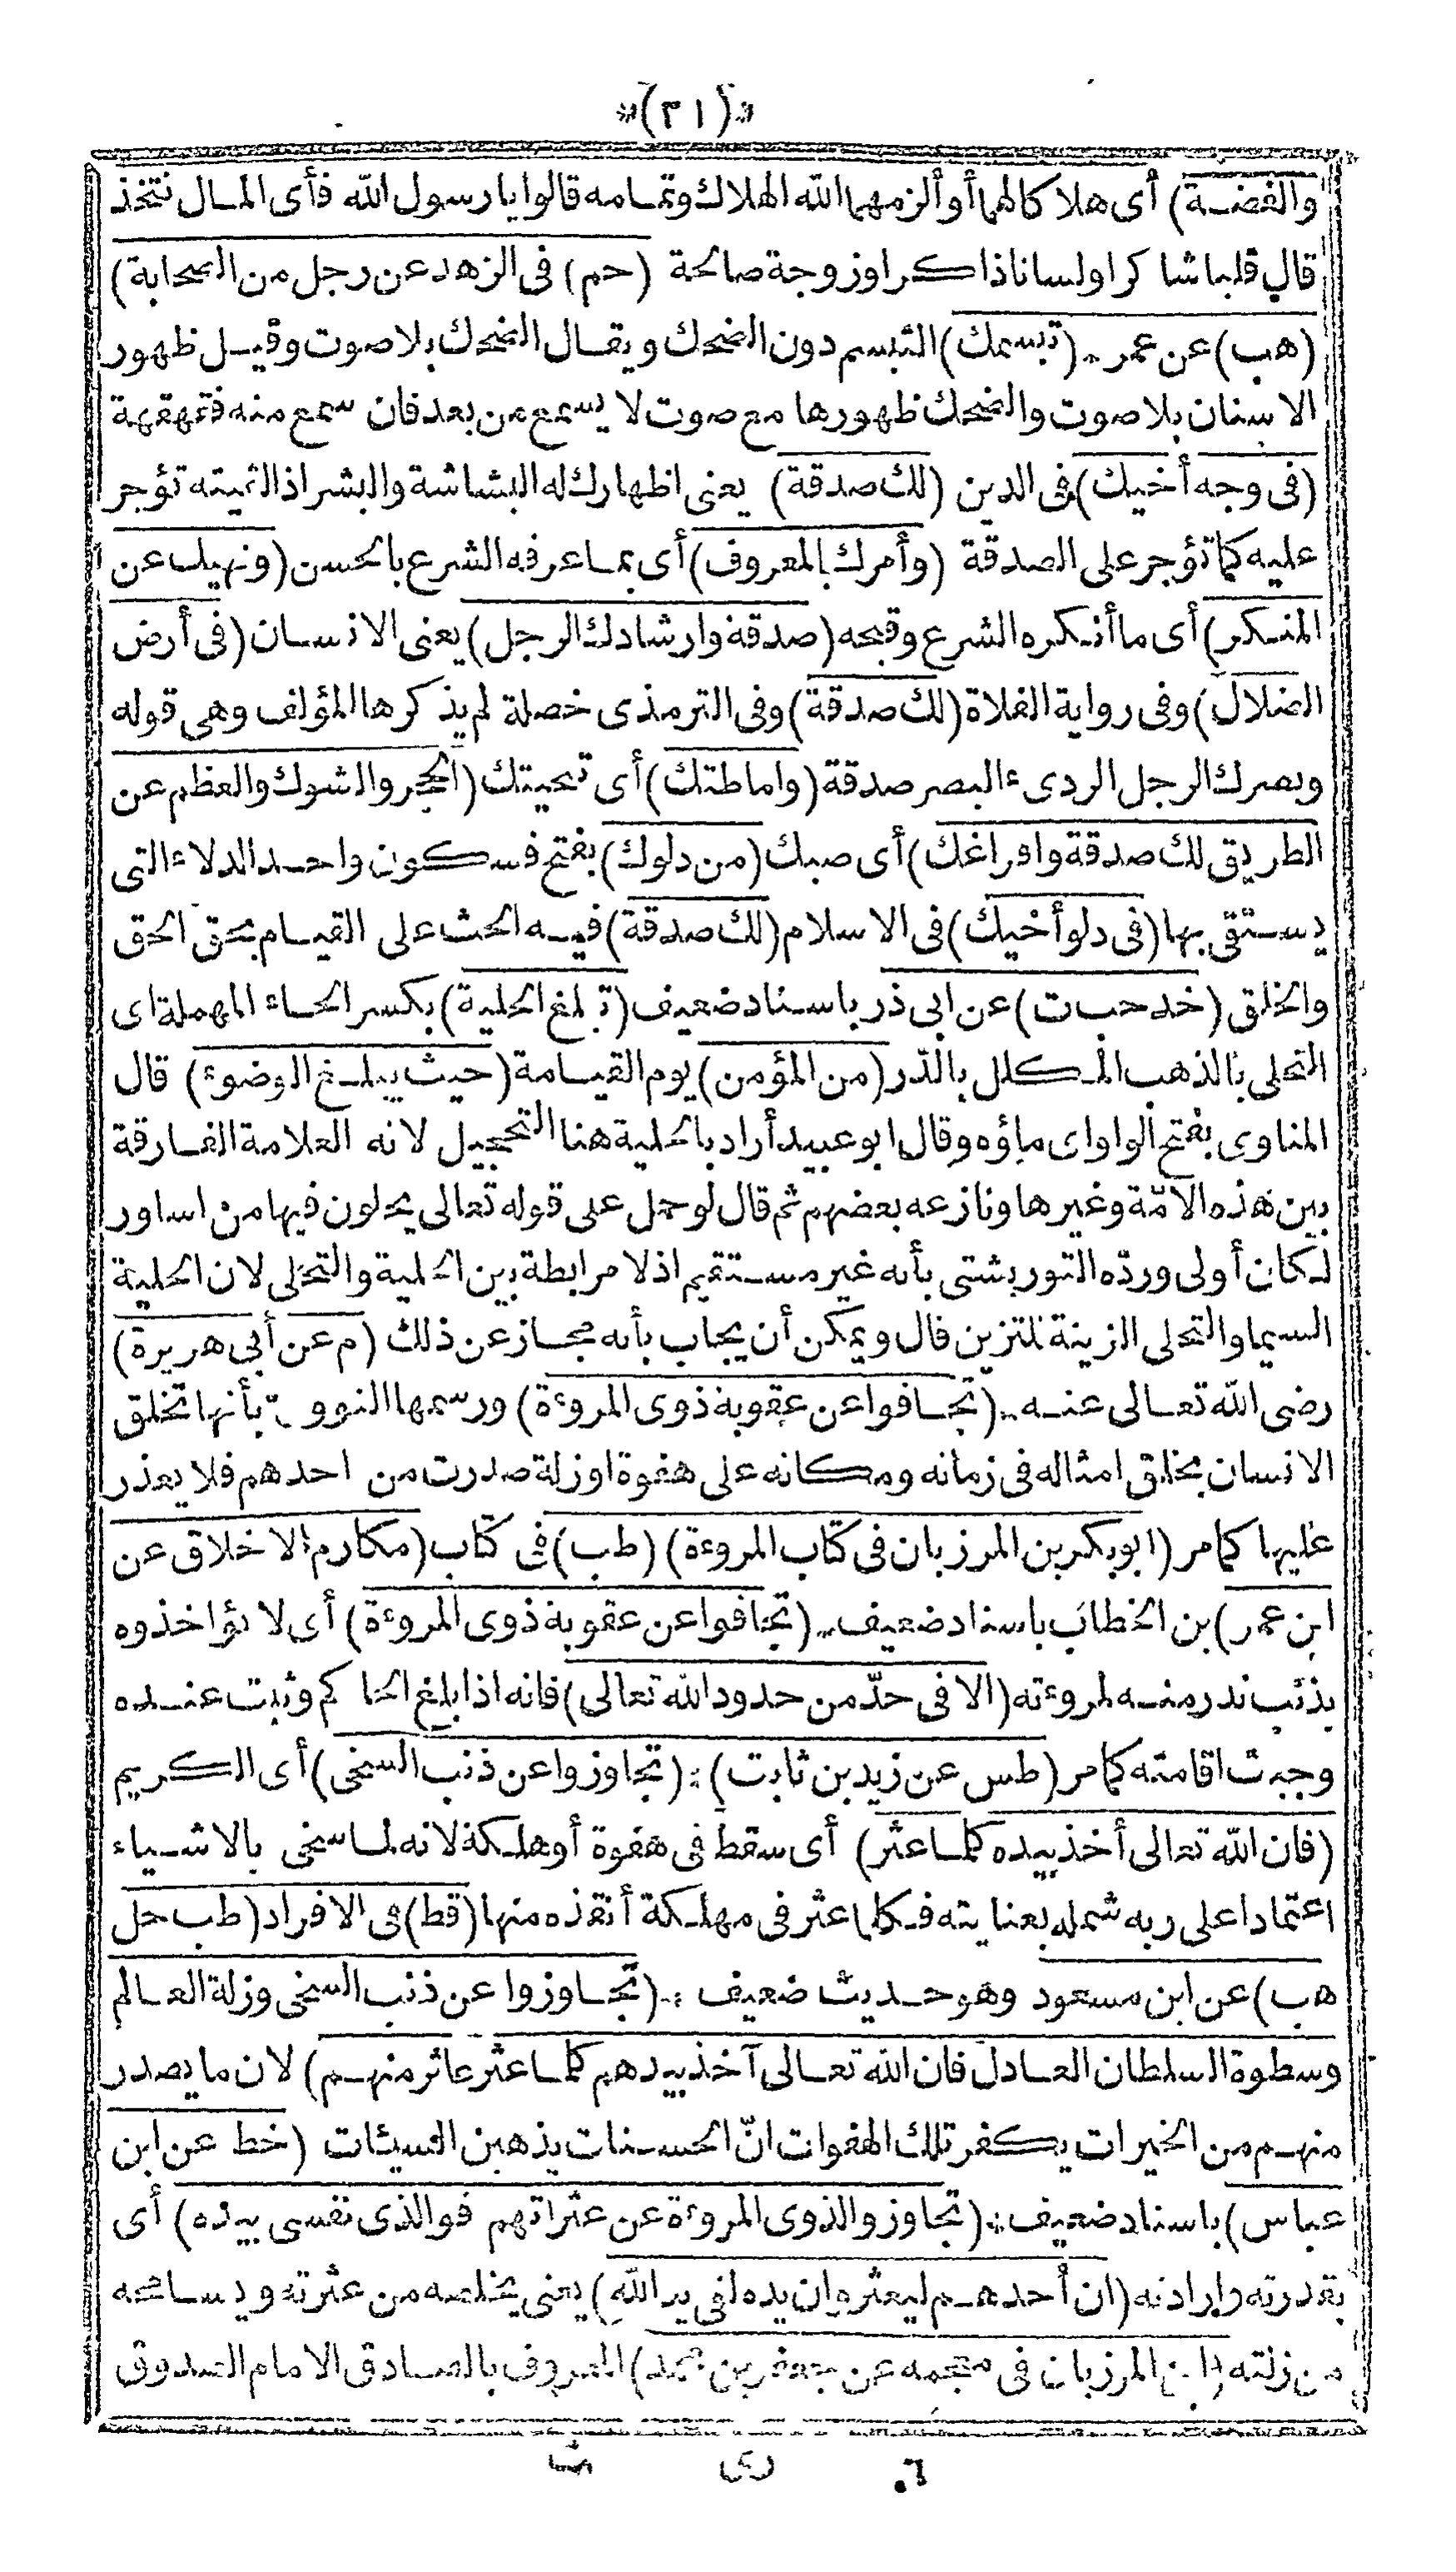 *(٣١)*
والفضة) أى هلا كالهما أو ألزمهما الله الهلاك وتمامه قالوا يا رسول الله فأى المال نتخذ
قال قلبا شاكرا ولسانا ذاكرا وزوجة صالحة (حم) فى الزهد عن رجل من الصحابة)
(هب) عن عمر * (تبسمك) التبسم دون الضحك ويقال الضحك بلا صوت وقيل ظهور
الاسنان بلا صوت والضحك ظهورها مع صوت لا يسمع من بعد فان سمع منه فقهقهة
(فى وجه أخيك) فى الدين (لك صدقة) يعنى اظهارك له البشاشة والبشر اذا لقيته تؤجر
عليه كما تؤجر على الصدقة (وأمرك بالمعروف) أى بما عرفه الشرع بالحسن (ونهيك عن
المنكر) أى ما أنكره الشرع وقبحه (صدقة وارشادك الرجل) يعنى الانسان (فى أرض
الضلال) وفى رواية الفلاة (لك صدقة) وفى الترمذى خصلة لم يذكرها المؤلف وهى قوله
وبصرك الرجل الردىء البصر صدقة (واماطتك) أى تنحيتك (الحجر والشوك والعظم عن
الطريق لك صدقة وافراغك) أى صبك (من دلوك) بفتح فسكون واحد الدلاء التى
يستقى بها (فى دلو أخيك) فى الاسلام (لك صدقة) فيه الحث على القيام بحق الحق
والخلق (خد حب ت) عن ابى ذر باسناد ضعيف (تبلغ الحلية) بكسر الحاء المهملة اى
التحلى بالذهب المكلل بالدّر (من المؤمن) يوم القيامة (حيث يبلغ الوضوء) قال
المناوى بفتح الواو اى ماؤه وقال ابو عبيد أراد بالحلية هنا التحجيل لانه العلامة الفارقة
بين هذه الامّة وغيرها ونازعه بعضهم ثم قال لو حمل على قوله تعالى يحلون فيها من اساور
لكان أولى وردّه التوربشتى بأنه غير مستقيم اذ لا مرابطة بين الحلية والتحلى لان الحلية
السيما والتحلى الزينة للتزين قال ويمكن أن يجاب بأنه مجاز عن ذلك (م عن أبى هريرة)
رضى الله تعالى عنه * (تجافوا عن عقوبة ذوى المروءة) ورسمها النووىّ بأنها تخلق
الانسان بخلق امثاله فى زمانه ومكانه على هفوة او زلة صدرت من احدهم فلا يعذر
عليها كما مر (ابو بكر بن المرزبان فى كتاب المروءة) (طب) فى كتاب (مكارم الاخلاق عن
ابن عمر) بن الخطاب باسناد ضعيف * (تجافوا عن عقوبة ذوى المروءة) أى لا تؤاخذوه
بذئب ندر منه لمروءته (الا فى حدّ من حدود الله تعالى) فانه اذا بلغ الحاكم وثبت عنده
وجبت اقامته كما مر (طس عن زيد بن ثابت) * (تجاوزوا عن ذنب السخى) أى الكريم
(فان الله تعالى أخذ بيده كلما عثر) أى سقط فى هفوة أو هلكة لانه لما سخى بالاشياء
اعتمادا على ربه شمله بعنايته فكلما عثر فى مهلكة أنقذه منها (قط) فى الافراد (طب حل
هب) عن ابن مسعود وهو حديث ضعيف * (تجاوزوا عن ذنب السخى وزلة العالم
وسطوة السلطان العادل فان الله تعالى آخذ بيدهم كلما عثر عاثر منهم) لان ما يصدر
منهم من الخيرات يكفر تلك الهفوات انّ الحسنات يذهبن السيئات (خط عن ابن
عباس) باسناد ضعيف * (تجاوزوا لذوى المروءة عن عثراتهم فوالذى نفسى بيده) أى
بقدرته وارادته (ان أحدهم ليعثر وان يده لفى يد الله) يعنى يخلصه من عثرته ويسامحه
من زلته (ابن المرزبان فى معجمه عن جعفر بن محمد) المعروف بالصادق الامام الصدوق
٦ زى ث